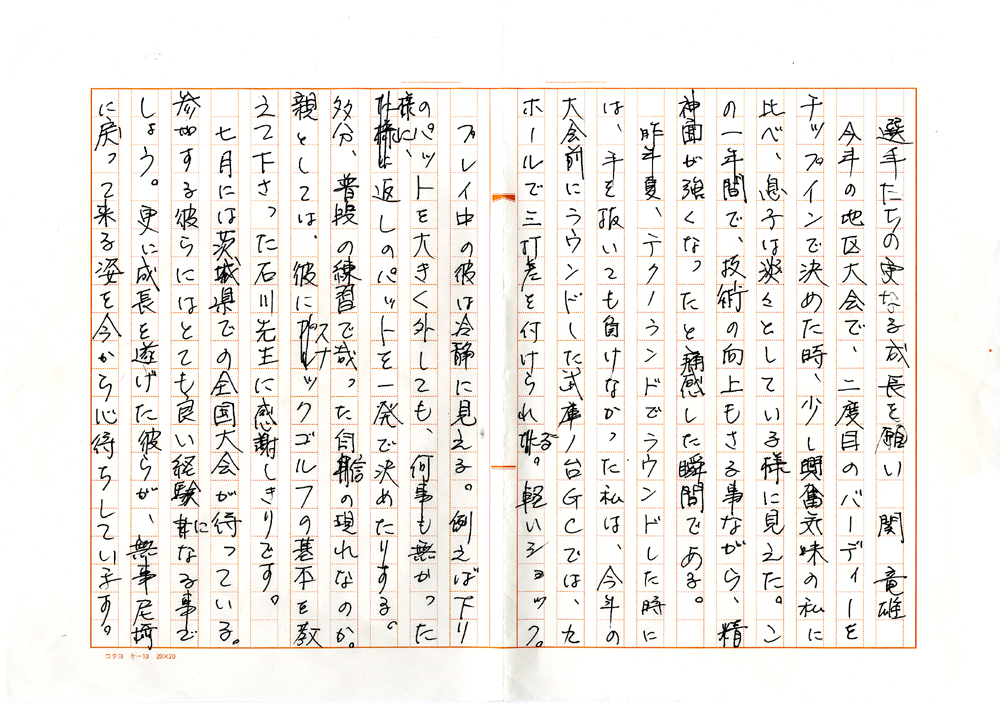 選手たちの更なる成長を願い　関　竜雄
今年の地区大会で、二度目のバーディーを
チップインで決めた時、少し興奮気味の私に
比べ、息子は淡々としている様に見えた。こ
の一年間で、技術の向上もさる事ながら、精
神面が強くなったと痛感した瞬間である。
昨年夏、テクノランドでラウンドした時に
は、手を抜いても負けなかった私は、今年の
大会前にラウンドした武庫ノ台GCでは、九
ホールで三打差を付けられる。軽いショック。
プレイ中の彼は冷静に見える。例えば下り
のパットを大きく外しても、何事も無かった
様に、返しのパットを一発で決めたりする。
多分、普段の練習で培った自信の現れなのか。
親としては、彼にスナックゴルフの基本を教
えて下さった石川先生に感謝しきりです。
七月には茨城県での全国大会が待っている。
参加する彼らにはとても良い経験になる事で
しょう。更に成長を遂げた彼らが、無事尼崎
に戻って来る姿を今から心待ちしています。
コクヨ ケー10 20×20